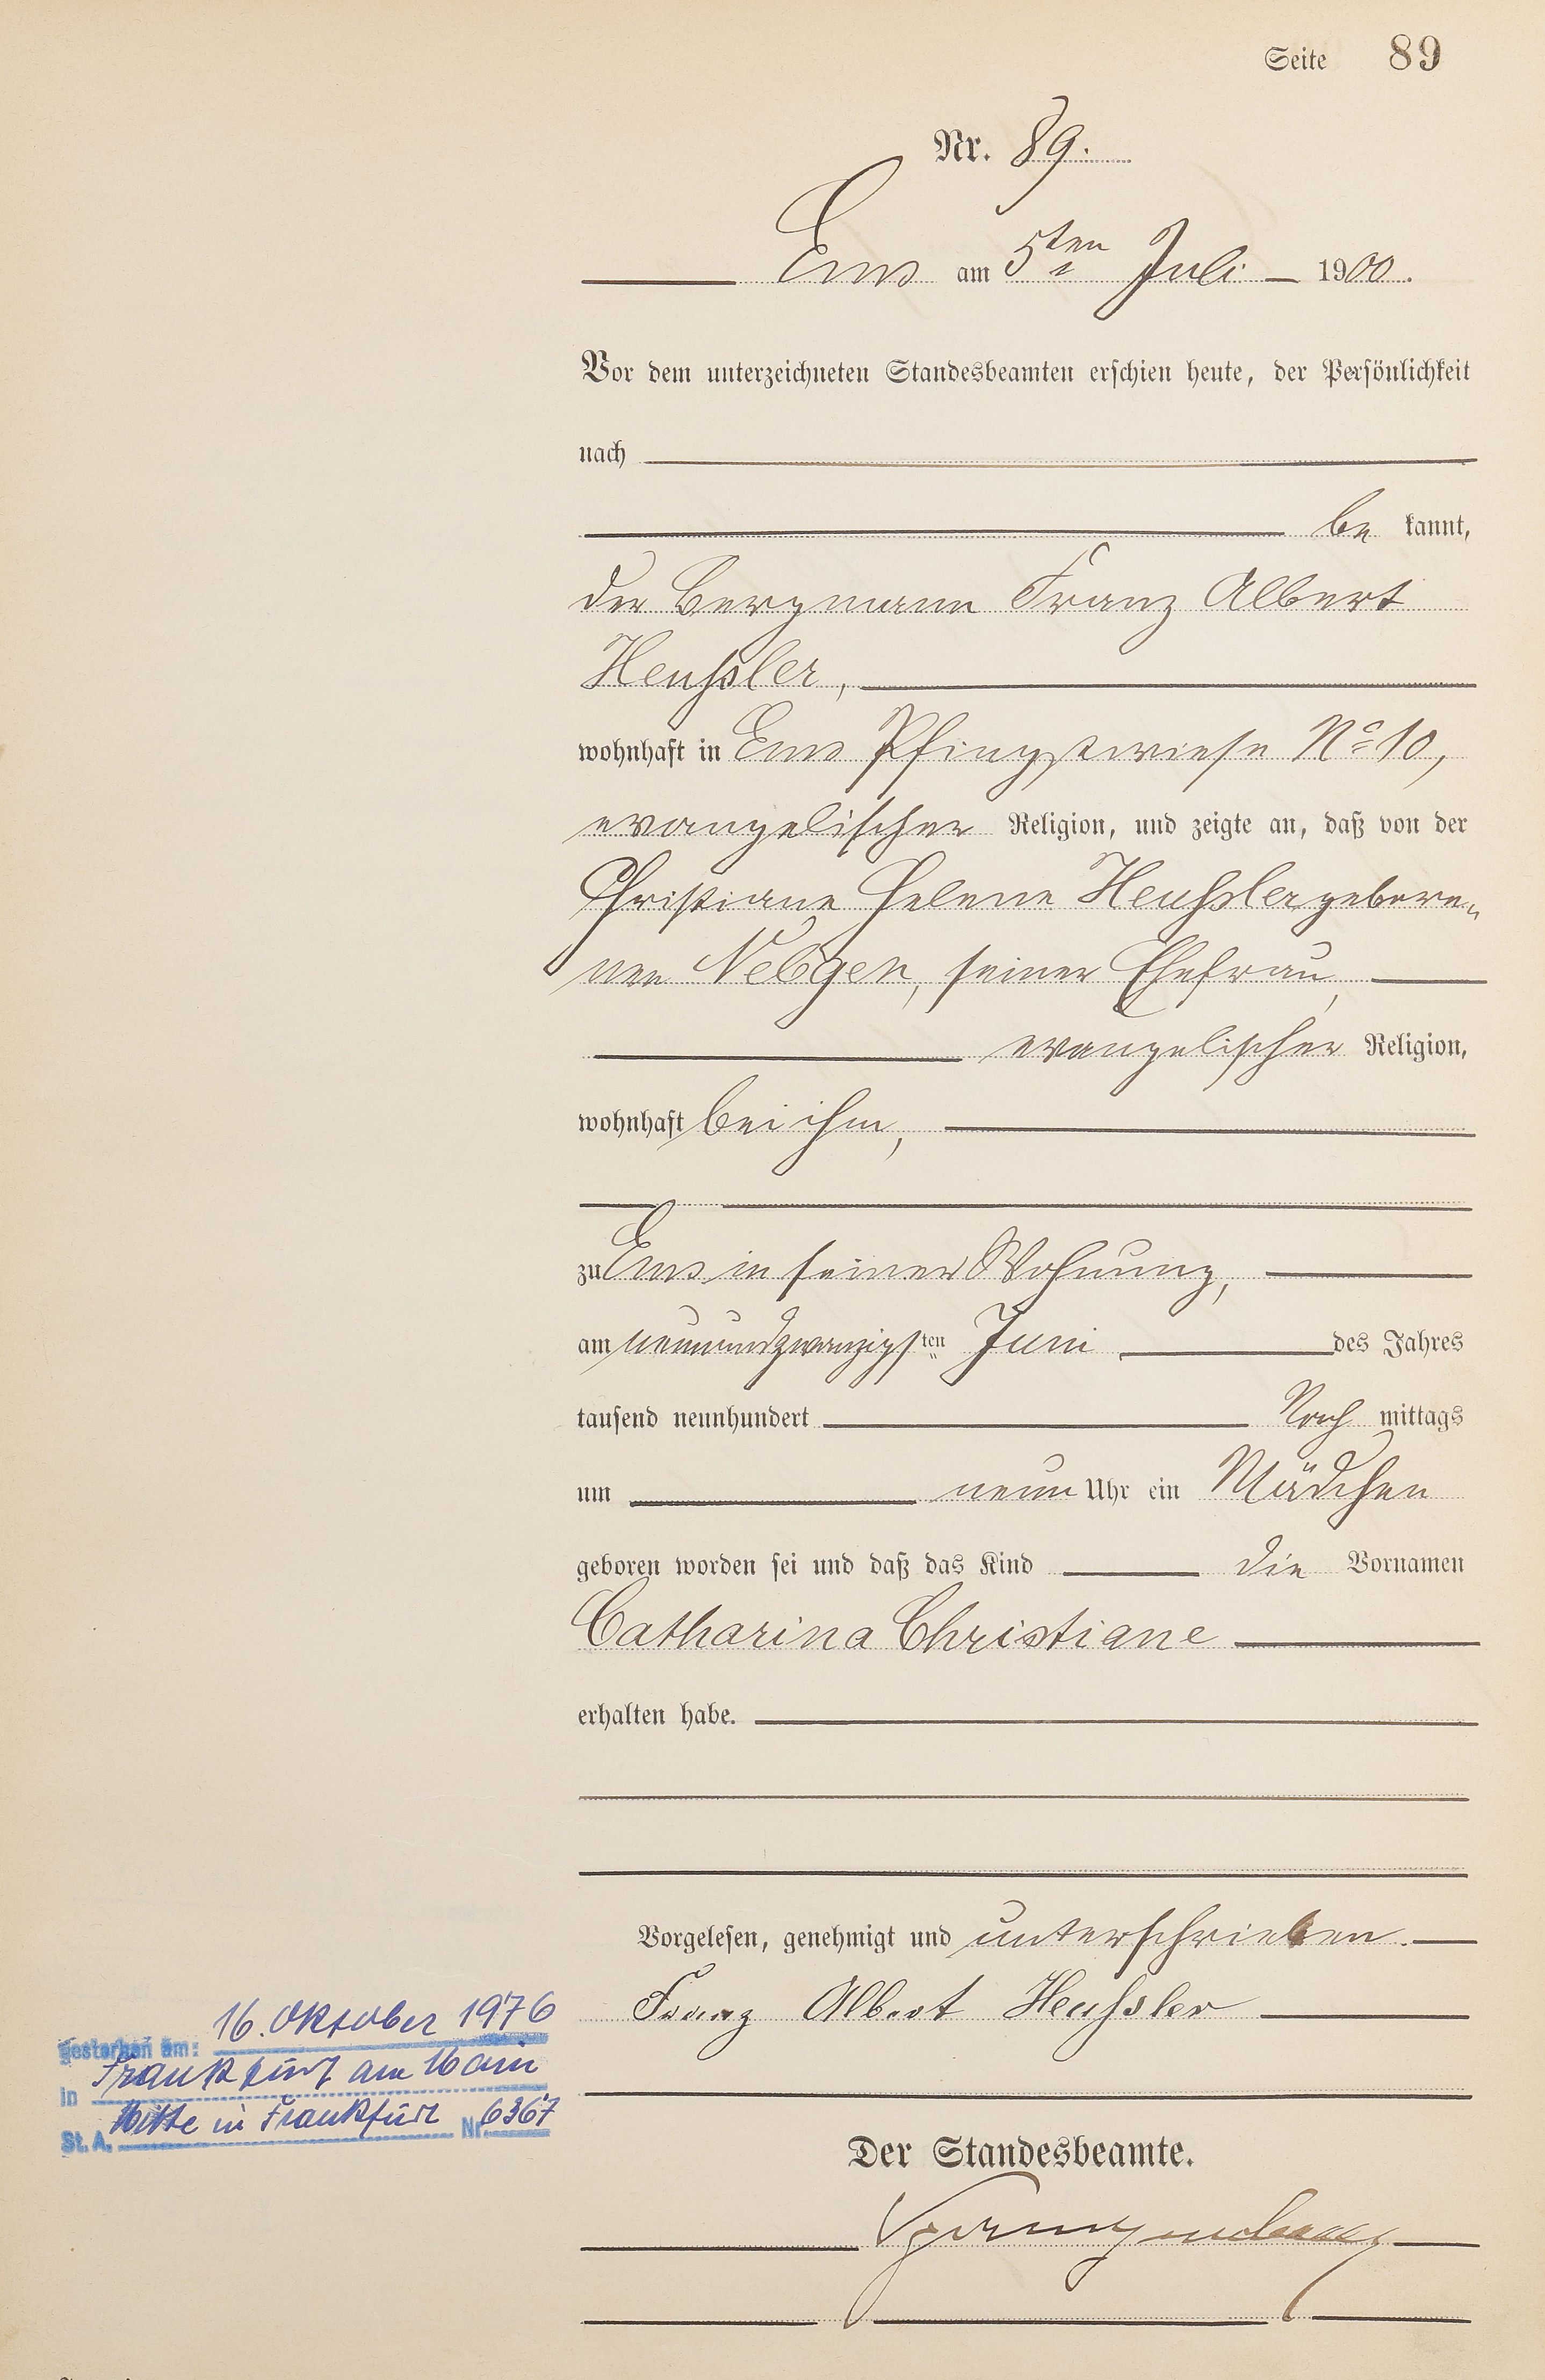 Seite 89
Nr. 89.
Ems am 5ten Juli 1900.
Vor dem unterzeichneten Standesbeamten erschien heute, der Persönlichkeit
nach
be kannt,
der Bergmann Franz Albert
Heußler,
wohnhaft in Ems Pfingstwiese No 10,
evangelischer Religion, und zeigte an, daß von der
Christiane Helene Heußler gebore-
nen Nebgen, seiner Ehefrau,
evangelischer Religion,
wohnhaft bei ihm,
zu Ems in seiner Wohnung,
am neunundzwanzigsten Juni des Jahres
tausend neunhundert Nach mittags
um neun Uhr ein Mädchen
geboren worden sei und daß das Kind die Vornamen
Catharina Christiane
erhalten habe.
Vorgelesen, genehmigt und unterschrieben.
Franz Albert Heußler
gestorben am: 16. Oktober 1976
in Frankfurt am Main
St. A. Mitte in Frankfurt Nr. 6367
Der Standesbeamte.